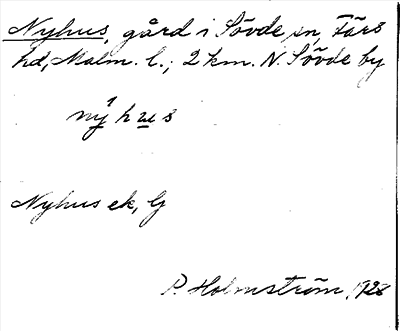 Nyhus, gård i Sövde sn, Färs
hd, Malm. l.; 2 km. N. Sövde by
ný hus
Nyhus ek, G
P. Holmström, 1928